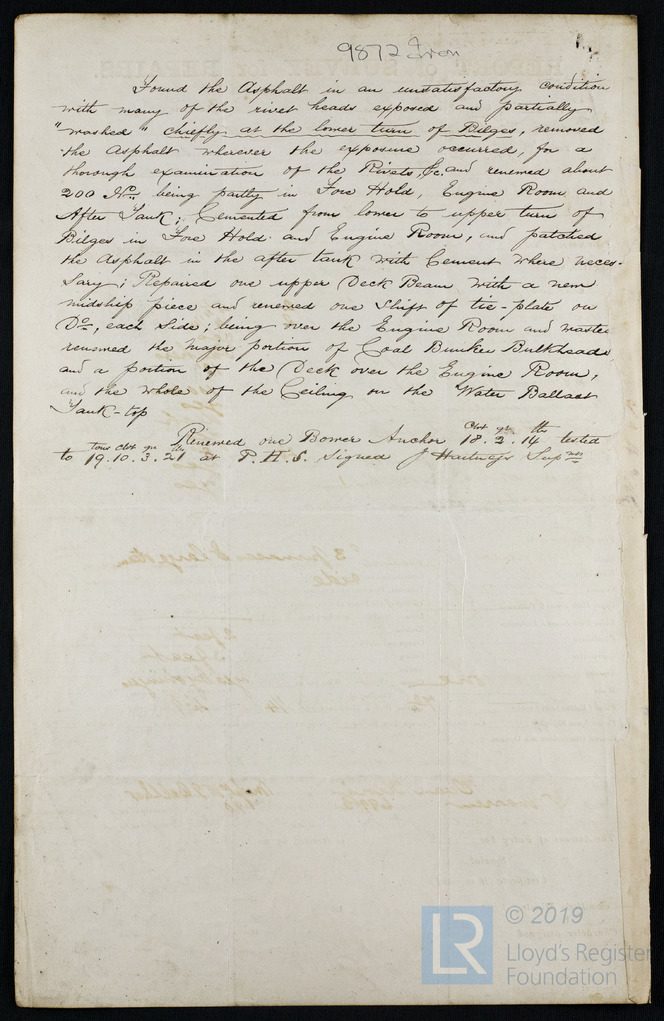 9872 Iron
Found the Asphalt in an unsatisfactory condition
with many of the rivet heads exposed and partially
"washed" chiefly at the lower turn of Bilges, removed
the Asphalt wherever the exposure occurred, for a
thorough examination of the Rivets, &c. and renewed about
200 No. being partly in Fore Hold, Engine Room and
After Tank; Cemented from lower to upper turn of
Bilges in Fore Hold and Engine Room, and patched
the Asphalt in the after tank with Cement where neces-
sary; Repaired one upper Deck Beam with a new
midship piece and renewed one Shift of tie-plate on
Do, each side; being over the Engine Room and
renewed the major portion of Coal Bunker Bulkheads
and a portion of the Deck over the Engine Room,
and the whole of the Ceiling on the Water Ballast
Tank-top
Renewed one Bower Anchor Cwt qr lb 18.2.14 tested
to tons cwt qr lb 19.10.3.21 at P.H.S. Signed J
© 2019
LR
Lloyd's Register
Foundation